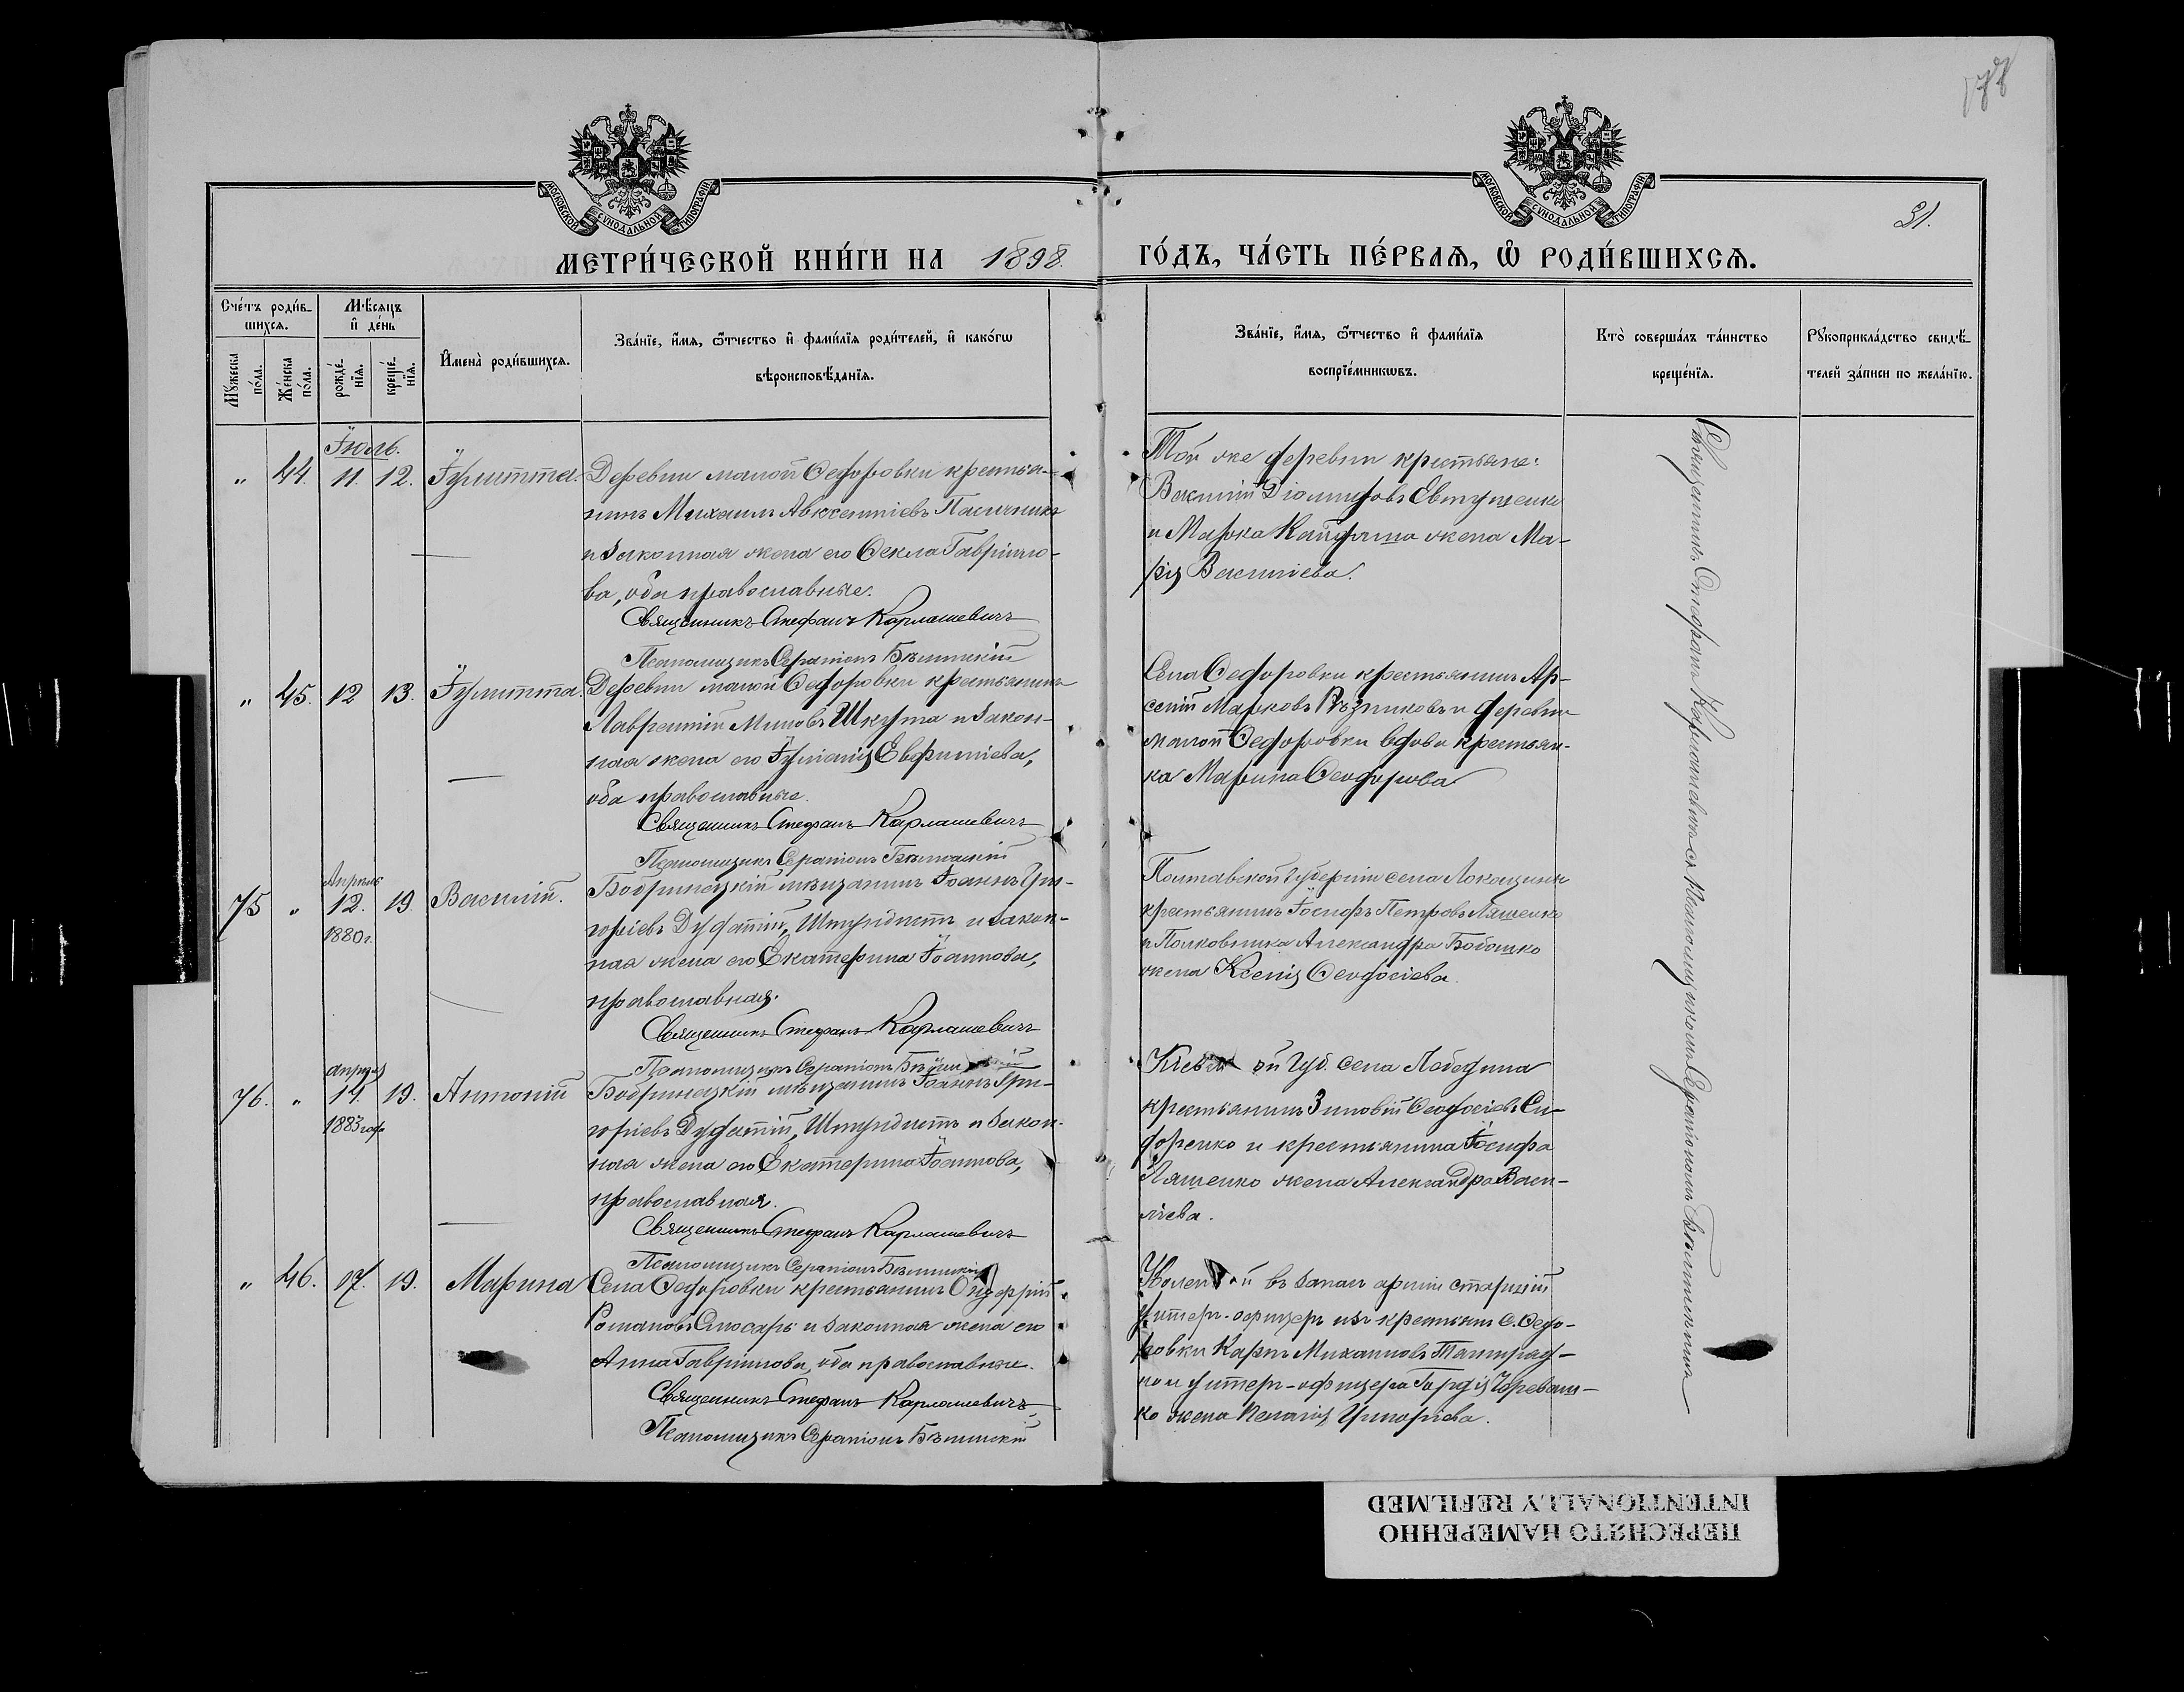 31.
МОСКОВСКОЙ СУНОДАЛЬНОЙ ТИПОГРАФІИ
МОСКОВСКОЙ СУНОДАЛЬНОЙ ТИПОГРАФІИ
МЕТРИ́ЧЕСКОЙ КНИ́ГИ НА 1898.
ГО́ДЪ, ЧА́СТЬ ПЕ́РВАѦ, Ѡ РОДИ́ВШИХСѦ.
Сче́тъ роди́в-
шихсѧ.
Мѣ́сѧцъ
и҆ де́нь
Мꙋ́жеска
по́ла.
Же́нска
по́ла.
рожде́-
нїѧ.
креще́-
нїѧ.
И҆мена̀ роди́вшихсѧ.
Зва́нїе, и҆́мѧ, ѻ҆́тчество и҆ фами́лїѧ роди́телей, и҆ како́гѡ
вѣроисповѣ́данїѧ.
Зва́нїе, и҆́мѧ, ѻ҆́тчество и҆ фами́лїѧ
воспрїе́мникѡвъ.
Кто̀ соверша́лъ та́инство
креще́нїѧ.
Рꙋкоприкла́дство свидѣ́-
телей за́писи по жела́нїю.
Іюль.
" 44. 11. 12. Іулитта. Деревни малой Ѳедоровки крестья-
нинъ Михаилъ Авксентіевъ Пасичникъ
и законная жена его Ѳекла Гавріило-
ва, оба православные.
Священникъ Стефанъ Карлашевичъ
Псаломщикъ Серапіонъ Бѣлинскій
Той же деревни крестьяне:
Василій Діомидовъ Евтушенко
и Марка Кайдаша жена Ма-
рія Василіева.
" 45. 12 13. Іулитта. Деревни малой Ѳедоровки крестьянинъ
Лаврентій Миновъ Шкута и закон-
ная жена его Іуліанія Евфиміева,
оба православные.
Священникъ Стефанъ Карлашевичъ
Псаломщикъ Серапіонъ Бѣлинскій
Села Ѳедоровки крестьянинъ Ар-
сеній Марковъ Рѣзниковъ и деревни
малой Ѳедоровки вдова крестьян-
ка Марина Ѳеодорова
75 " Апрѣль 12. 1880г. 19. Василій. Бобринецкій мѣщанинъ Іоаннъ Гри-
горіевъ Дудатій, Штундистъ и закон-
ная жена его Екатерина Іоаннова,
православная.
Священникъ Стефанъ Карлашевичъ
Псаломщикъ Серапіонъ
Полтавской Губерніи села
крестьянинъ Іосифъ Петровъ Ляшенко
и Полковника Александра Бобошко
жена Ксенія Ѳеодосіева.
76. " апрѣля 14. 1883 года 19. Антоній Бобринецкій мѣщанинъ Іоаннъ Гри-
горіевъ Дудатій, Штундистъ и закон-
ная жена его Екатерина Іоаннова,
православная.
Священникъ Стефанъ Карлашевичъ
Псаломщикъ Серапіонъ Бѣлинскій
Губ. села Лебедина
крестьянинъ Зиновій Ѳеодосіевъ Си-
доренко и крестьянина Іосифа
Ляшенко жена Александра Васи-
ліева.
" 46. 17. 19. Марина Села Ѳедоровки крестьянинъ Онуфрій
Романовъ Слюсарь и законная жена его
Анна Гавріилова, оба православные.
Священникъ Стефанъ Карлашевичъ
Псаломщикъ Серапіонъ Бѣлинскій
въ запасъ арміи старшій
унтеръ-офицеръ изъ крестьянъ с. Ѳедо-
ровки Карпъ Михаиловъ
унтеръ-офицера Гордія
жена Пелагія Григоріева.
Священникъ Стефанъ Карлашевичъ съ Псаломщикомъ Серапіономъ Бѣлинскимъ
ПЕРЕСНЯТО НАМЕРЕННО
INTENTIONALLY REFILMED